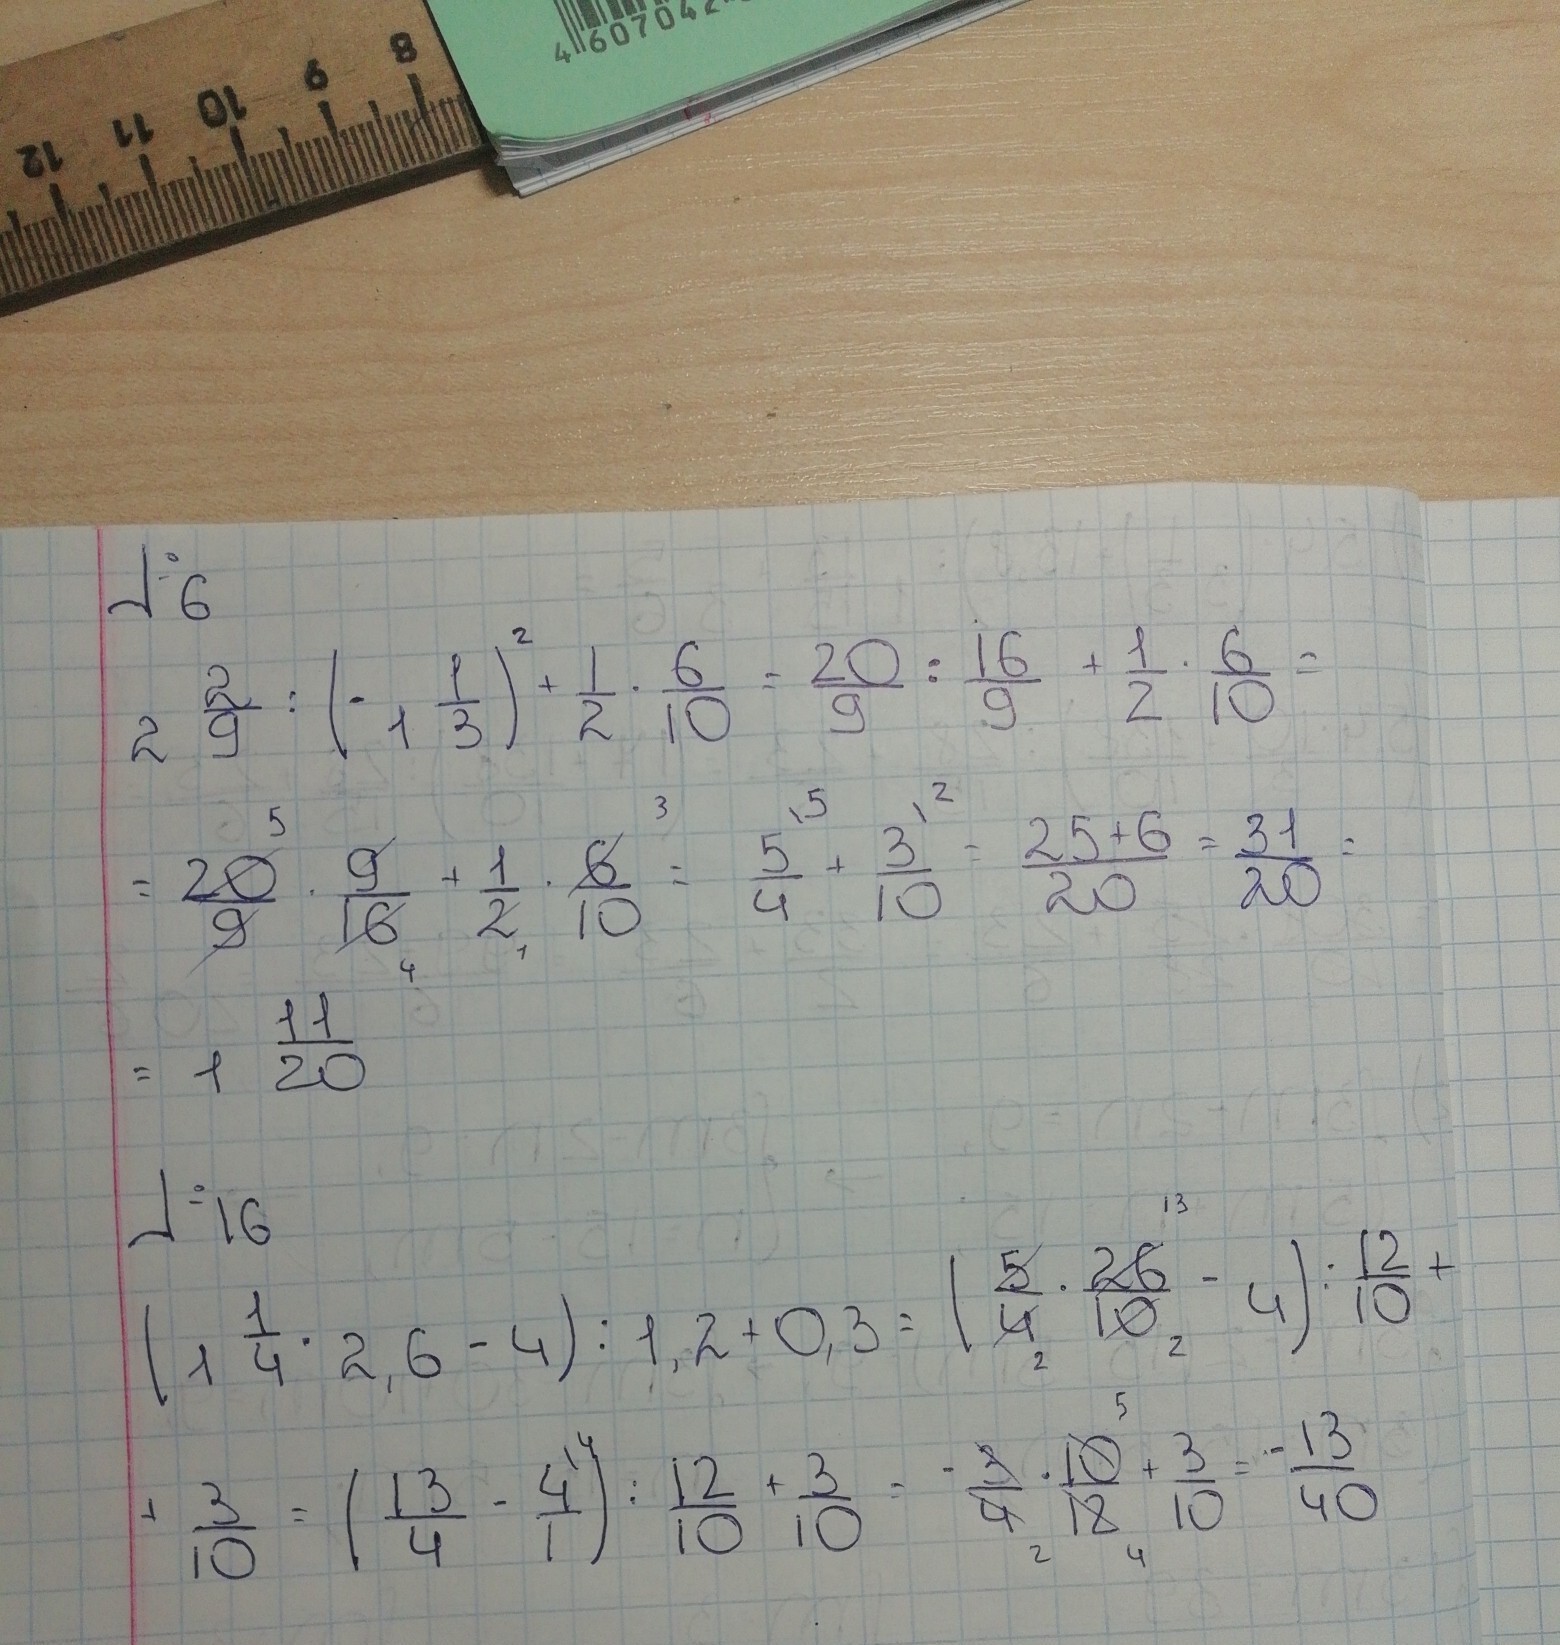 8 9 10 11 12
4 607042
№6
2 2/9 : (-1 1/3)² + 1/2 · 6/10 = 20/9 : 16/9 + 1/2 · 6/10 =
= 20/9 · 9/16 + 1/2 · 6/10 = 5/4 + 3/10 = 25+6/20 = 31/20 =
= 1 11/20
№16
(1 1/4 · 2,6 - 4) : 1,2 + 0,3 = (5/4 · 26/10 - 4) : 12/10 +
+ 3/10 = (13/4 - 4/1) : 12/10 + 3/10 = - 3/4 · 10/12 + 3/10 = - 13/40